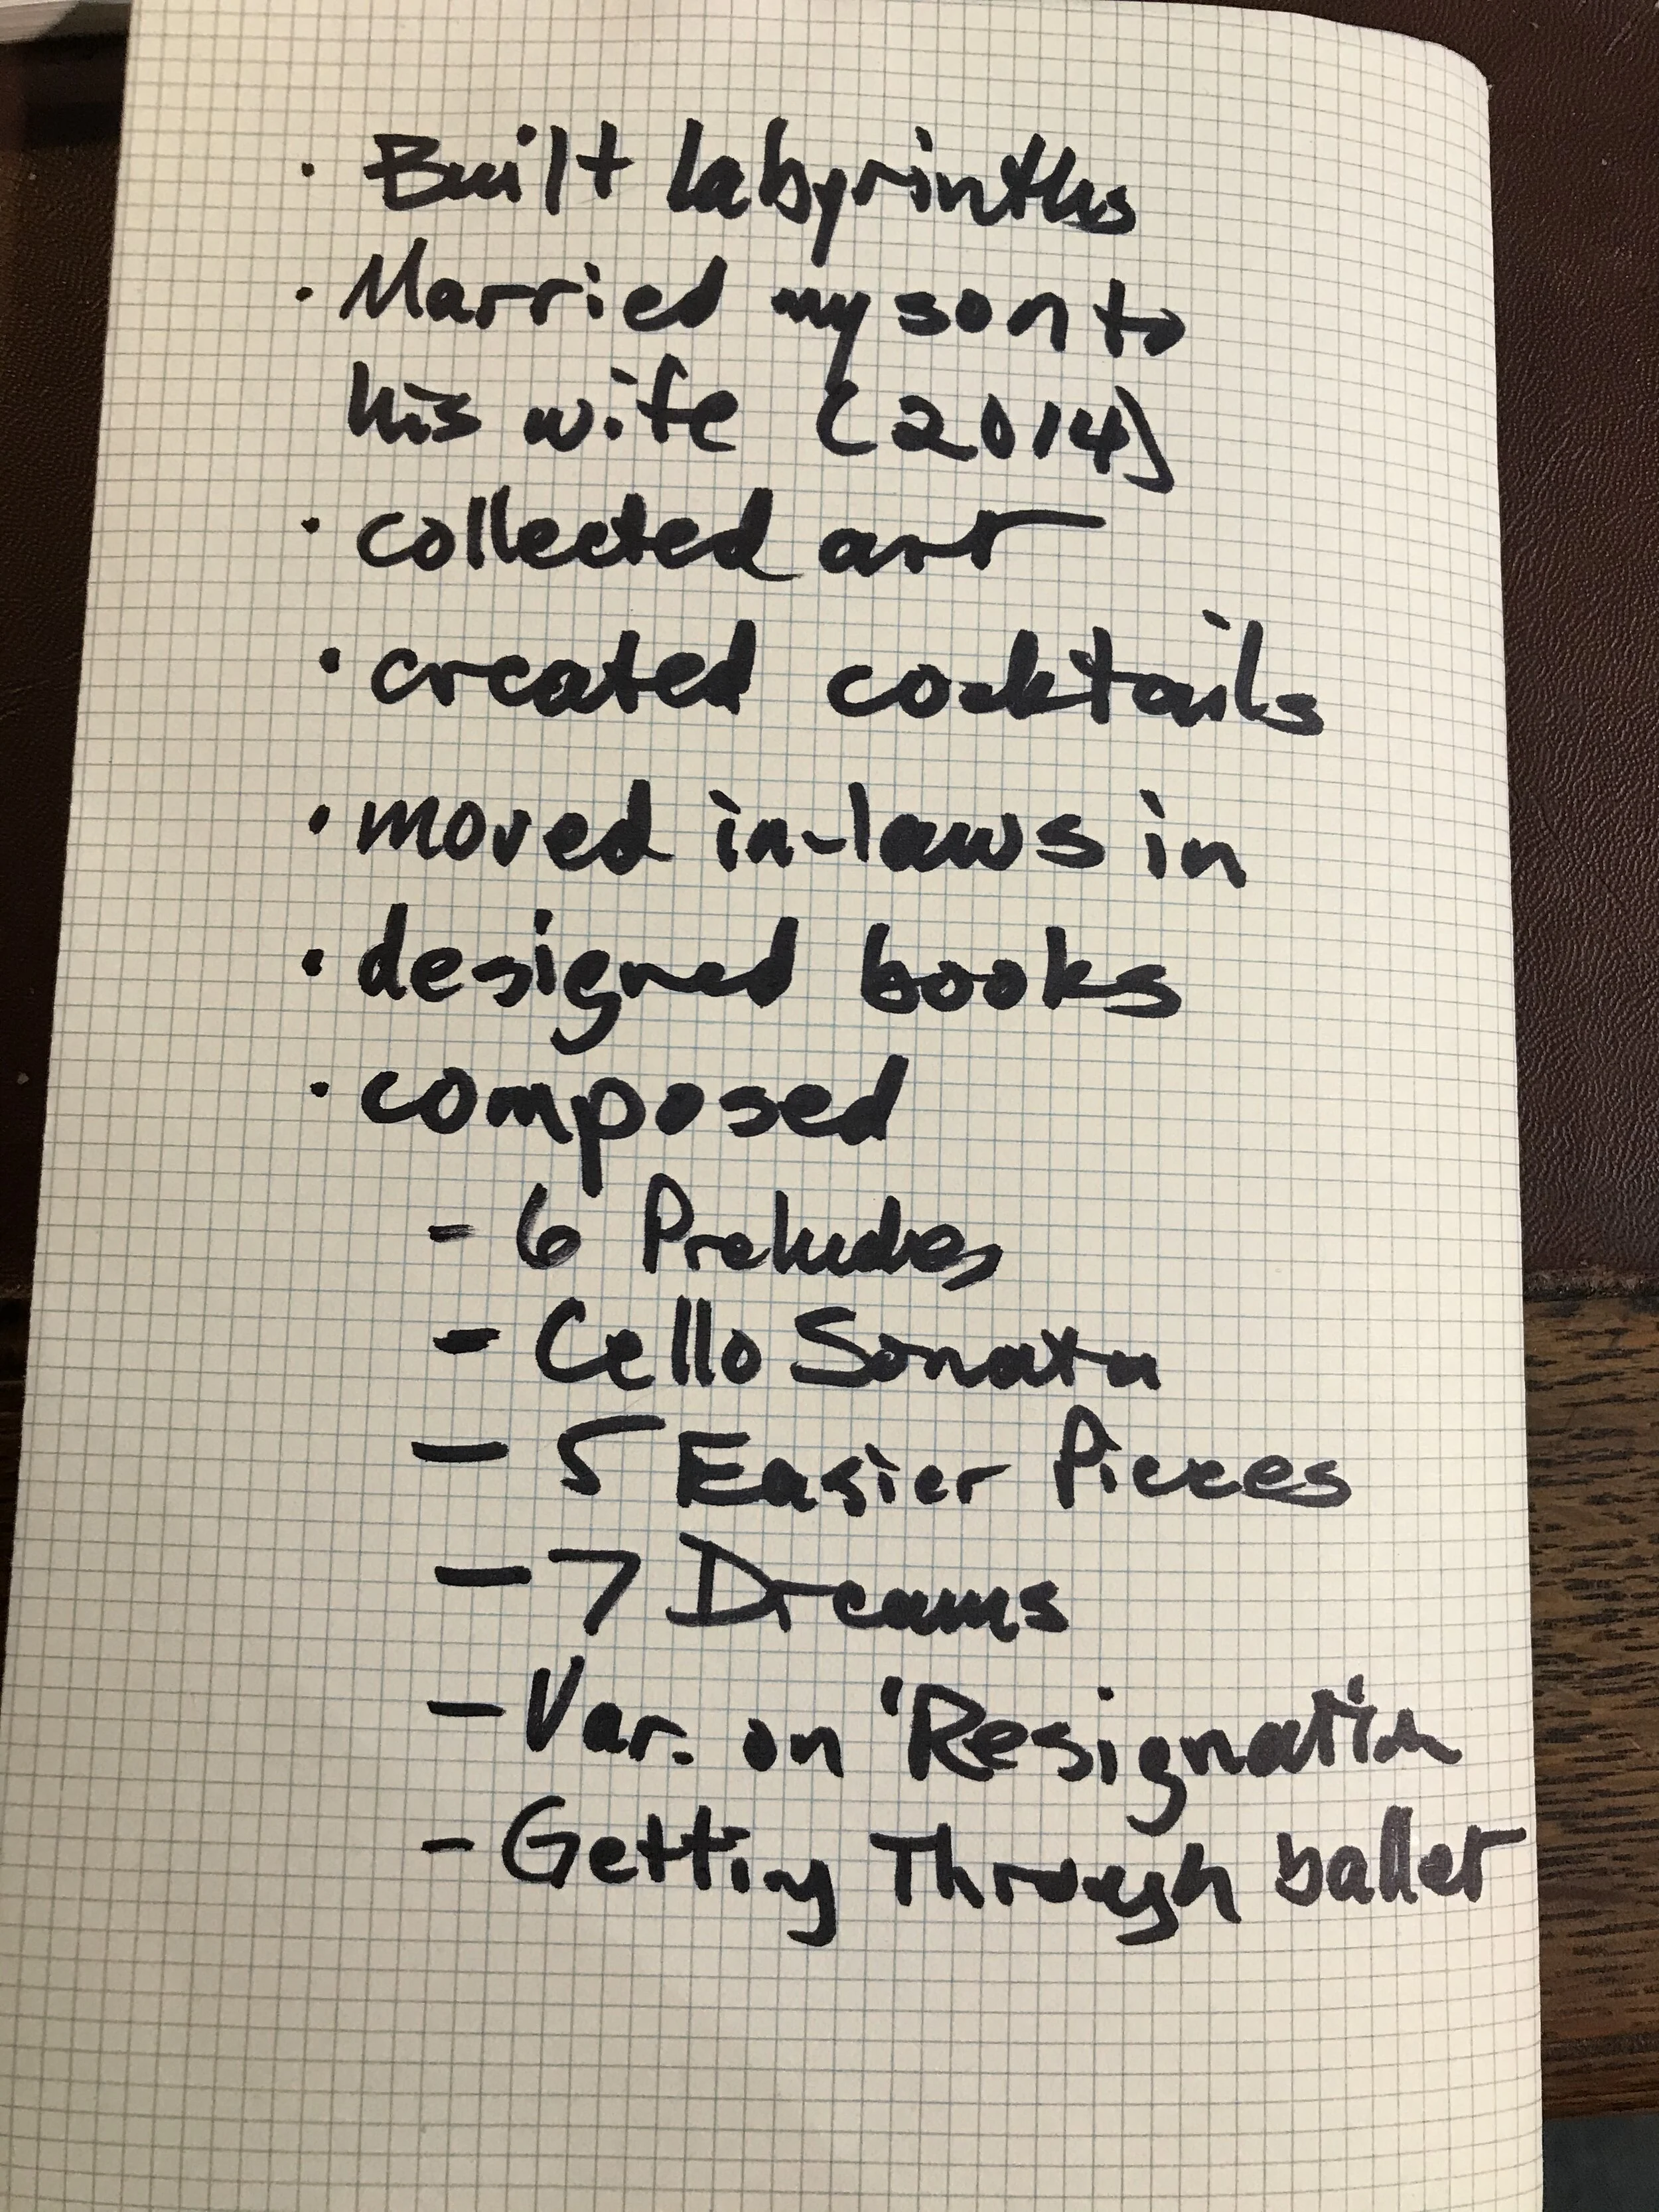 · Built labyrinths
· Married my son to
his wife (2014)
· collected art
· created cocktails
· moved in-laws in
· designed books
· composed
- 6 Preludes
- Cello Sonata
- 5 Easier Pieces
- 7 Dreams
- Var. on 'Resignation
- Getting Through ballet